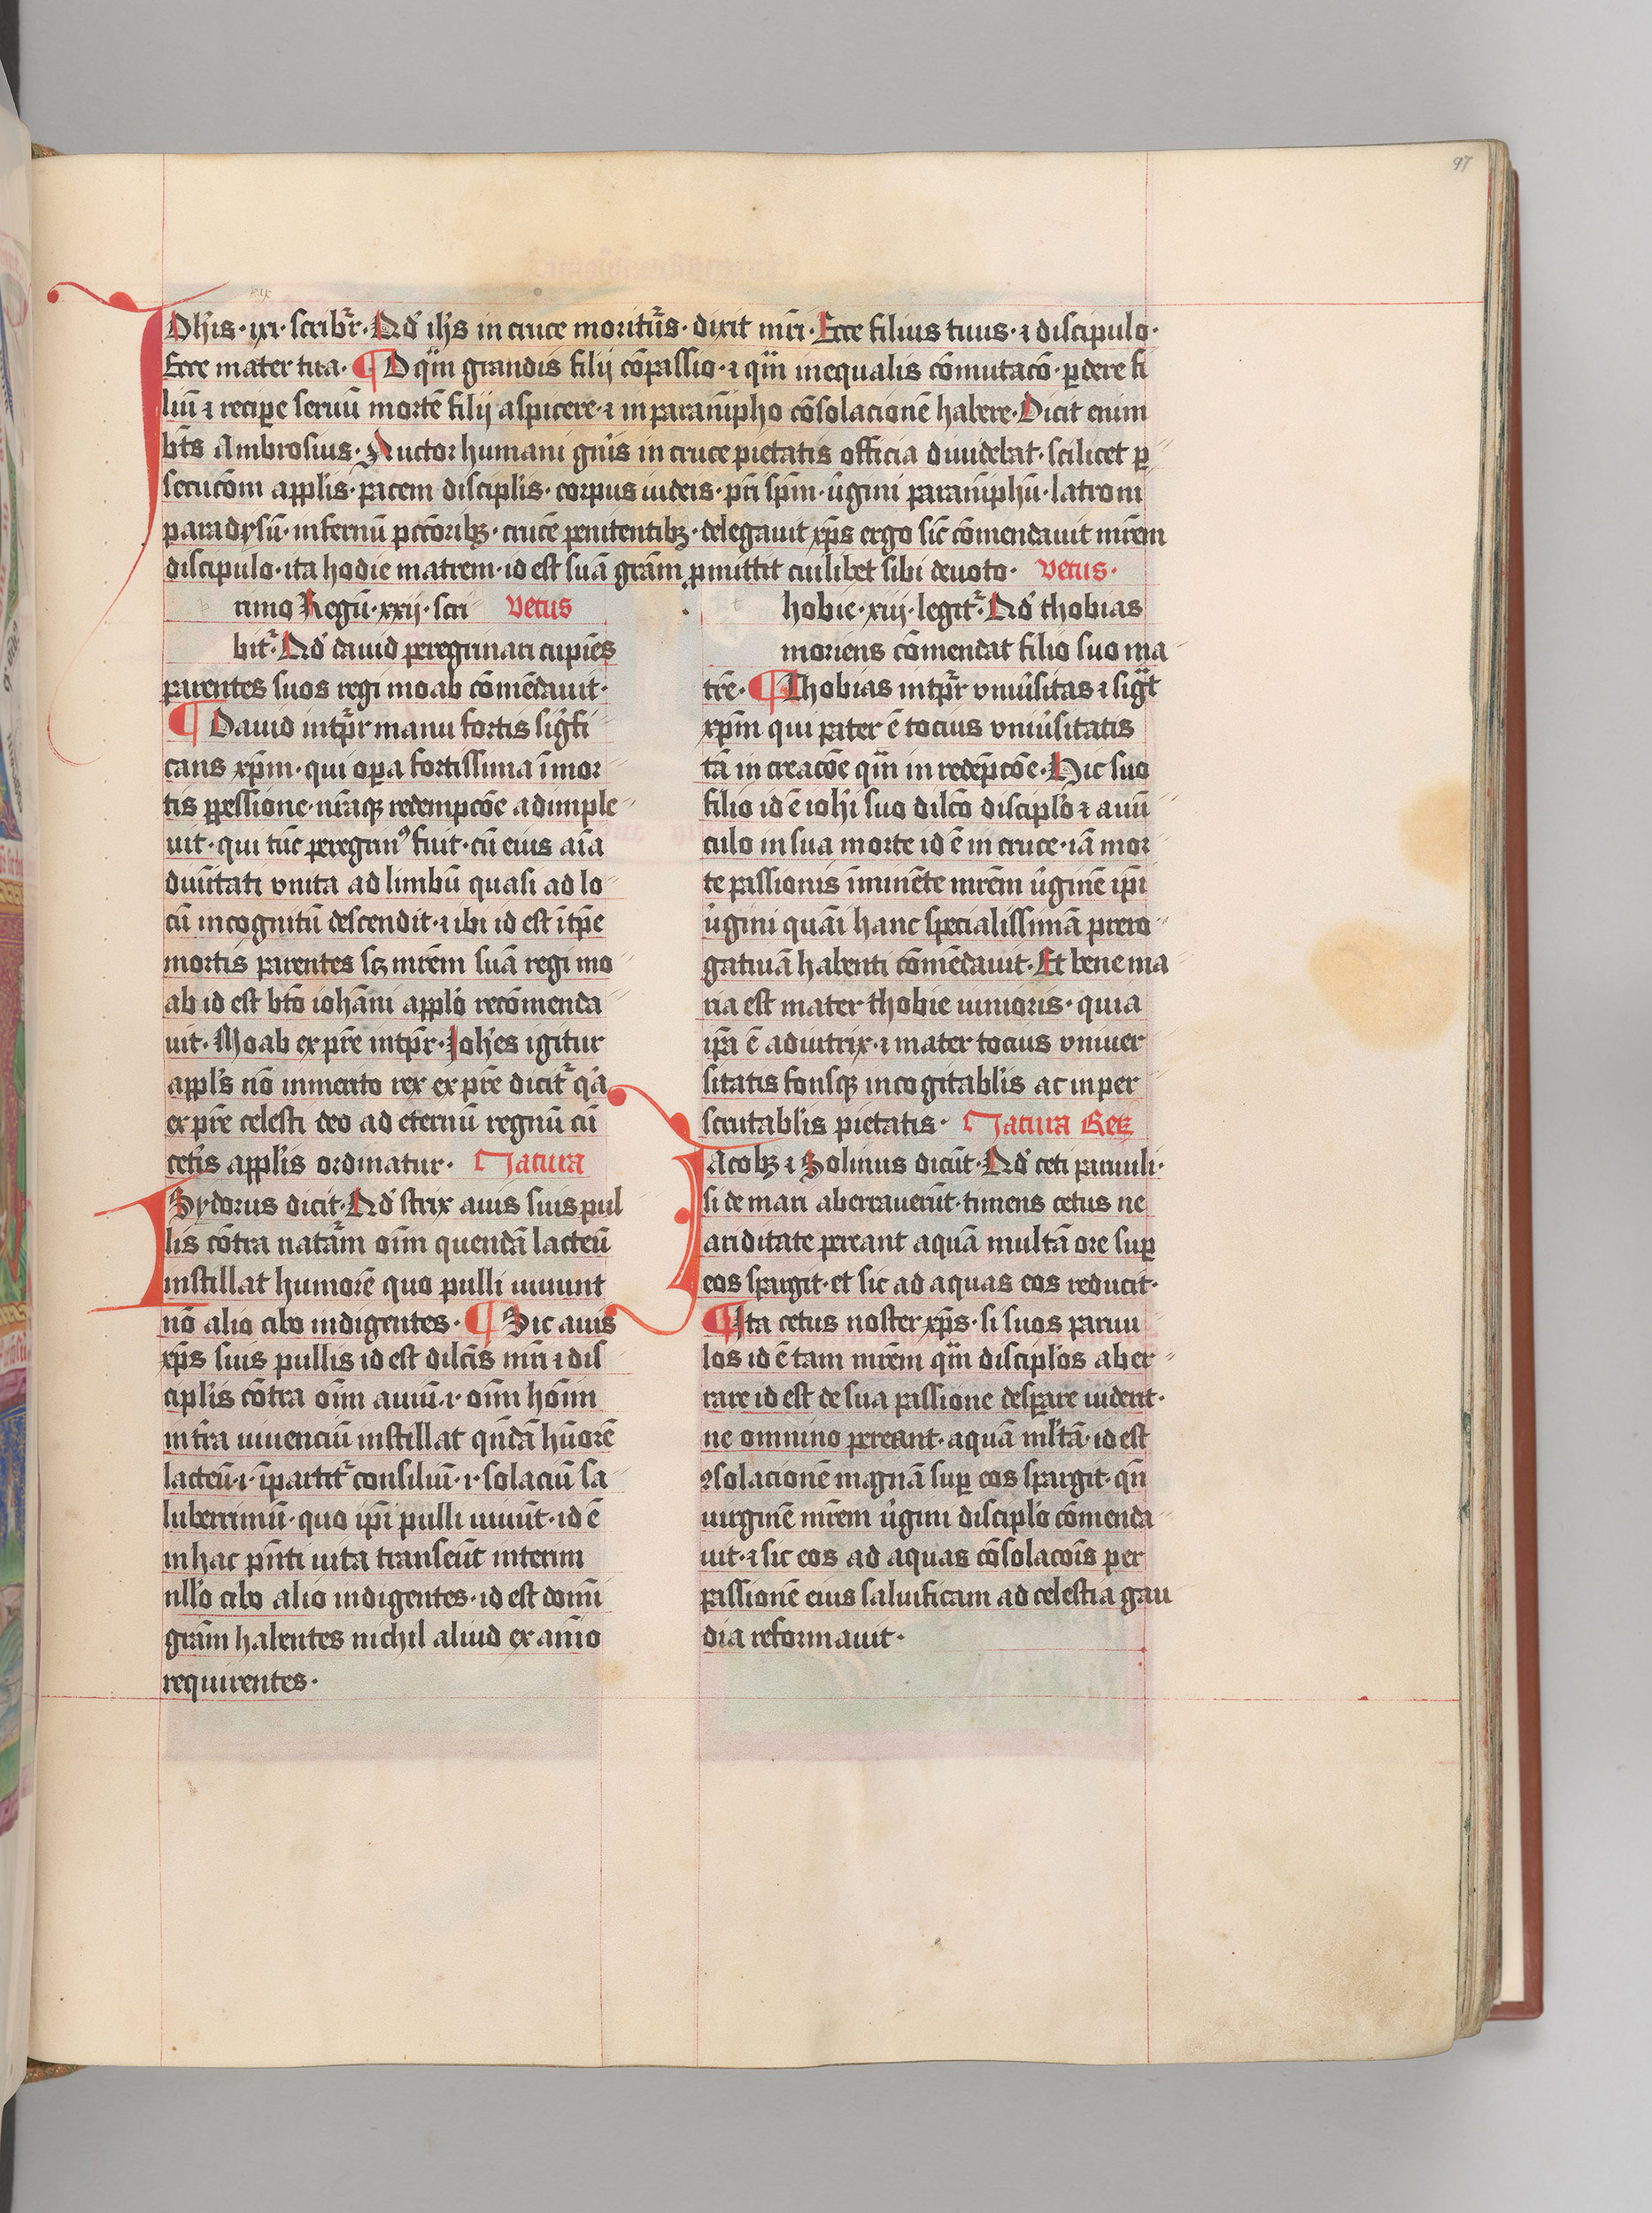 97
Ioh̄is · ixi · scribr̄ · Qd̓ ih̄s in cruce moritūs · dixit mr̄i · Ecce filius tuus · ⁊ discipulo ·
Ecce mater tua · ¶ O qm̄ grandis filij cōpassio · ⁊ qm̄ inequalis cōmutacō · ꝑdere fi
liū ⁊ reciꝑe seruū mortē filij aspicere · ⁊ in paranīpho cōsolacionē habere · Dicit enim
bt̄s Ambrosius · Auctor humani gn̄is in cruce pietatis officia diuidebat · scilicet ꝑ
secucōm appl̄is · pacem discipl̄is · corpus iudeis · pr̄i sp̄m · v̓gini paranīphū · latroni
paradysū · infernū pccōribꝫ · crucē penitentibꝫ · delegauit xp̄s ergo sic̄ cōmendauit mr̄em
discipulo · ita hodie matrem · id est suā grām ꝑmittit cuilibet sibi deuoto · Vetus ·
rimo Regū · xxij · scri Vetus
bit᷑ · Qd̓ dauid peregrinari cupiēs
parentes suos regi moab cōmēdauit ·
¶ Dauid intp̄r manu fortis sigfi
cans xp̄m · qui oꝑa fortissima ī mor
tis ꝑpessione · nr̄aqꝫ redempcōe adimple
uit · qui tūc peregrin᷒ fuit · cū eius aīa
diuītati vnita ad limbū quasi ad lo
cū incognitū descendit · ⁊ ibi id est ī tp̄e
mortis parentes sꝫ mr̄em suā regi mo
ab id est bt̄o iohāni appl̄o recōmenda
uit · Moab ex pr̄e intp̄r · Ioh̄es igitur
appl̄s nō inmerito rex ex pr̄e dicit᷑ q̓a
ex pr̄e celesti deo ad eternū regnū cū
cetīs appl̄is ordinatur · Natura
Isydorus dicit · Qd̓ strix auis suis pul
lis cōtra natām oīm quendā lacteū
instillat humorē quo pulli uiuunt
nō alio cibo indigentes · ¶ Sic auis
xp̄s suis pullis id est dilc̄is mr̄i ⁊ dis
cipl̄is cōtra oīm auiū · i · oīm hoīm
īntra uiuenciū instillat qn̄dā hūorē
lacteū · i · īpartit᷑ consiliū · i · solaciū sa
luberrimū · quo ip̄i pulli uiuūt · id ē
in hac pn̄ti uita transeūt interim
nll̓o cibo alio indigentes · id est domī
grām habentes nichil aliud ex aīo
requirentes ·
hobie · xiij · legit᷑ · Qd̓ thobias
moriens cōmendat filio suo ma
trē · ¶ Thobias intp̄r vniūsitas ⁊ sigt̄
xp̄m qui pater ē tocius vniūsitatis
tā in creacōe qm̄ in redēpcōe · Hic suo
filio id ē ioh̄i suo dilc̄o discipl̄o ⁊ auū
culo in sua morte id ē in cruce · iā mor
te passionis īminēte mr̄em v̓ginē ip̄i
v̓gini quāi hanc specialissimā prero
gatiuā habenti cōmēdauit · Et bene ma
ria est mater thobie iunioris · quia
ip̄a ē adiutrix · ⁊ mater tocius vniuer
sitatis fonsqꝫ incogitabl̄is ac inper
scrutabl̄is pietatis · Natura Reꝝ
Iacobꝫ ⁊ Solinus dicūt · Qd̓ ceti paruuli ·
si de mari aberrauerūt · timens cetus ne
ariditate pereant aquā multā ore suꝑ
eos spargit · et sic ad aquas eos reducit ·
¶ Ita cetus noster xp̄s · si suos paruu
los id ē tam mr̄em qm̄ discipl̄os aber
rare id est de sua passione desꝑare uident ·
ne omnino pereant · aquā ml̄tā · id est
ꝯsolacionē magnā suꝑ eos spargit · qn̄
uirginē mr̄em v̓gini discipl̄o cōmenda
uit · ⁊ sic eos ad aquas cōsolacoīs per
passionē eius saluificam ad celestia gau
dia reformauit ·